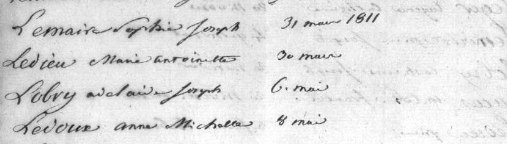 Lemaire Sophie Joseph 31 mars 1811
Ledieu Marie antoinette 30 mars
Lobry adelaide Joseph 6. mai
Ledoux anne Michelle 8 mai